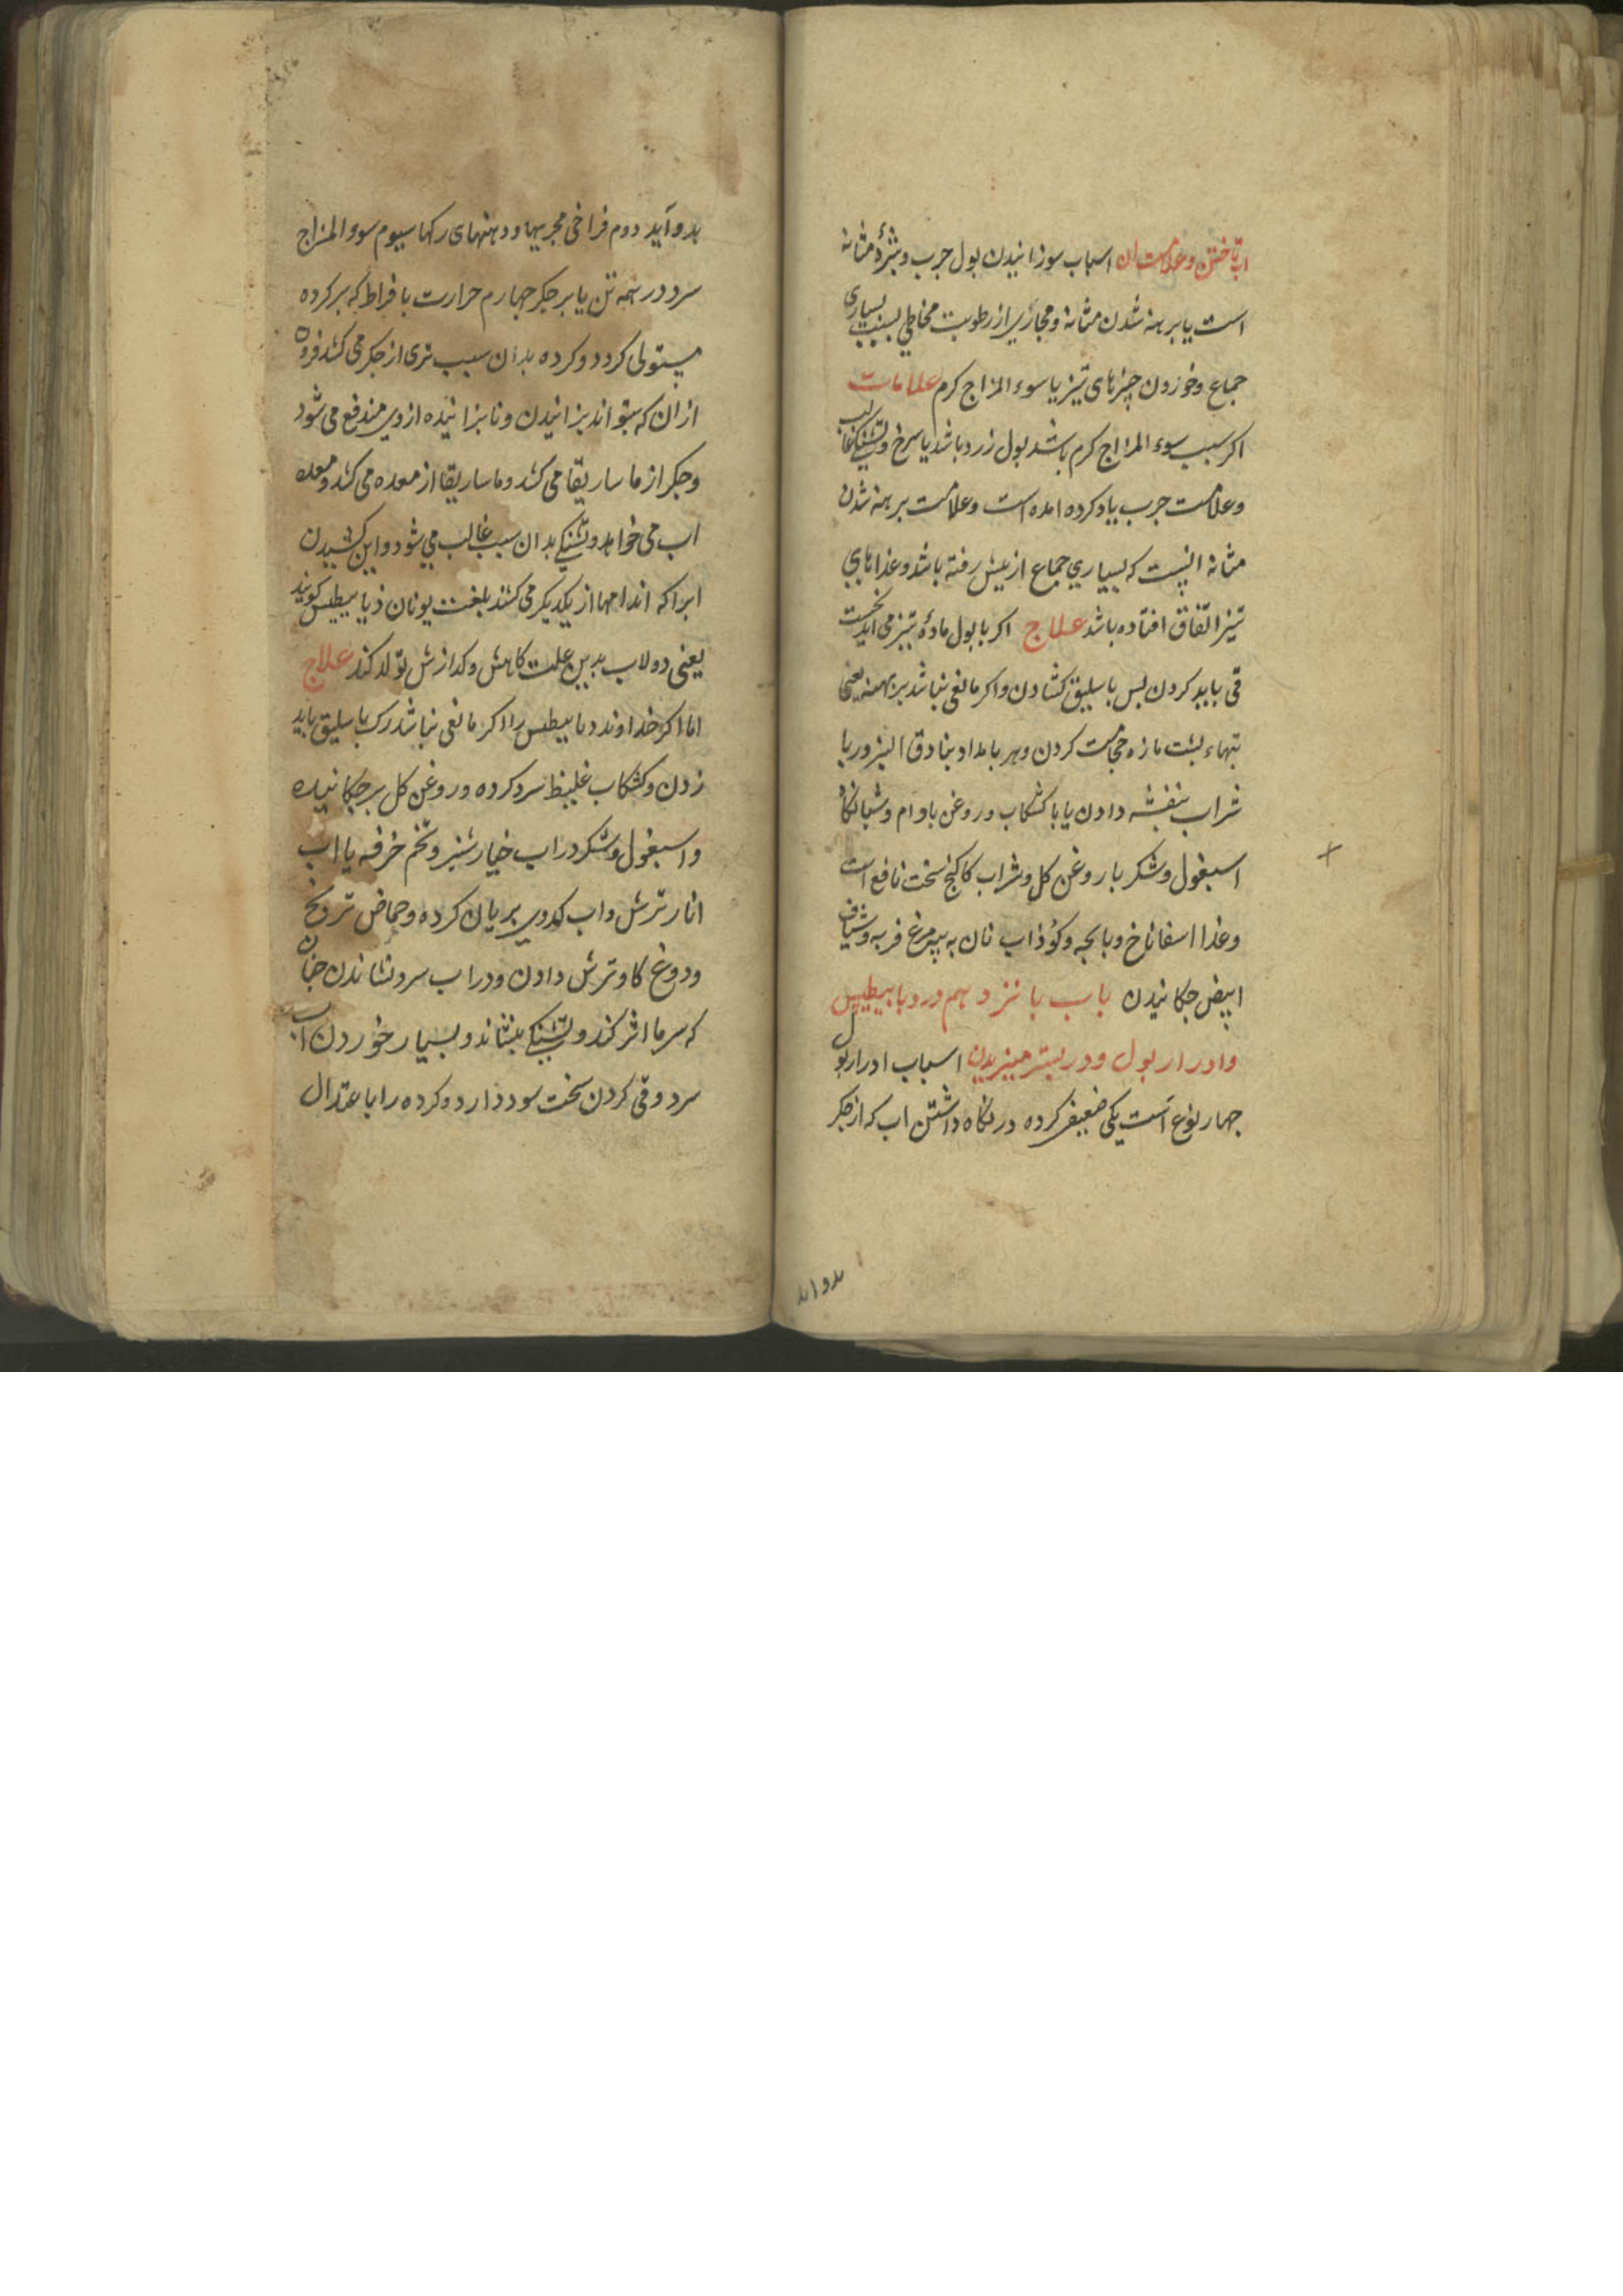 اب تاختن وعلامت ان اسباب سوزانیدن بول جرب وبثرهٔ مثانه
است یا برهنه شدن مثانه ومجاری از رطوبت مخاطی بسبب بسیاری
جماع وخوردن چیزهای تیز یا سوء المزاج کرم علامات
اکر سبب سوء المزاج کرم باشد بول زرد باشد یا سرخ وتشنکی غالب
وعلامت جرب یاد کرده امده است وعلامت برهنه شدن
مثانه انیست که بسیاری جماع از پیش رفته باشد وغذاهای
تیز اتفاق افتاده باشد علاج اکر با بول مادهٔ تیز می اید نخست
قی باید کردن پس باسلیق کشادن واکر مانعی نباشد برپهنه یعنی
بتهاء پشت مازه حجامت کردن وهر بامداد بنادق البزور با
شراب بنفشه دادن یا با کشکاب وروغن بادام وشبانکاه
اسبغول وشکر با روغن کل وشراب کاکنج سخت نافع است
وغذا اسفاناخ وپایچه وکوذاب نان به پیه مرغ فربه وشیاف
ابیض چکانیدن باب پانزدهم در دیابیطیس
وادرار بول ودر بستر میزیدن اسباب ادرار بول
چهار نوع است یکی ضعیفی کرده در نکاه داشتن اب که از جکر
بدو اید
بدو آید دوم فراخی مجریها ودهنهای رکها سیوم سوء المزاج
سرد در همه تن یا بر جکر چهارم حرارت بافراط که بر کرده
مستولی کردد وکرده بدان سبب تری از جکر می کشد فزون
ازان که بتواند بزانیدن ونابزانیده از وی مندفع می شود
وجکر از ماساریقا می کشد وماساریقا از معده می کشد ومعده
اب می خواهد وتشنکی بدان سبب غالب می شود واین کشیدن
ابرا که اندامها از یکدیکر می کشند بلغت یونان ذیابیطیس کویند
یعنی دولاب بدین علت کاهش وکدازش تولد کند علاج
اما اکر خداوند دیابیطس را اکر مانعی نباشد رک باسلیق باید
زدن وکشکاب غلیظ سرد کرده وروغن کل برچکانیده
واسبغول وشکر در اب خیار شنبر وتخم خرفه یا اب
انار ترش واب کدوی بریان کرده وحماض ترنج
ودوغ کاو ترش دادن ودر اب سرد نشاندن چنان
که سرما اثر کند وتشنکی بنشاند وبسیار خوردن اب
سرد وقی کردن سخت سود دارد وکرده را باعتدال